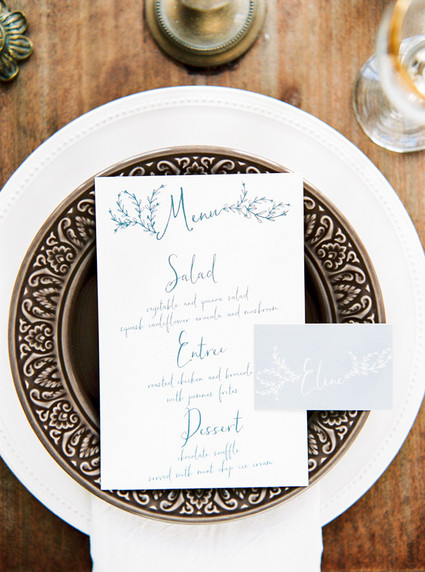 Menu
Salad
vegetable and quinoa salad
squash cauliflower avocado and mushroom
Entree
roasted chicken and broccoli
with pommes frites
Dessert
chocolate souffle
served with mint chip ice cream
Eline